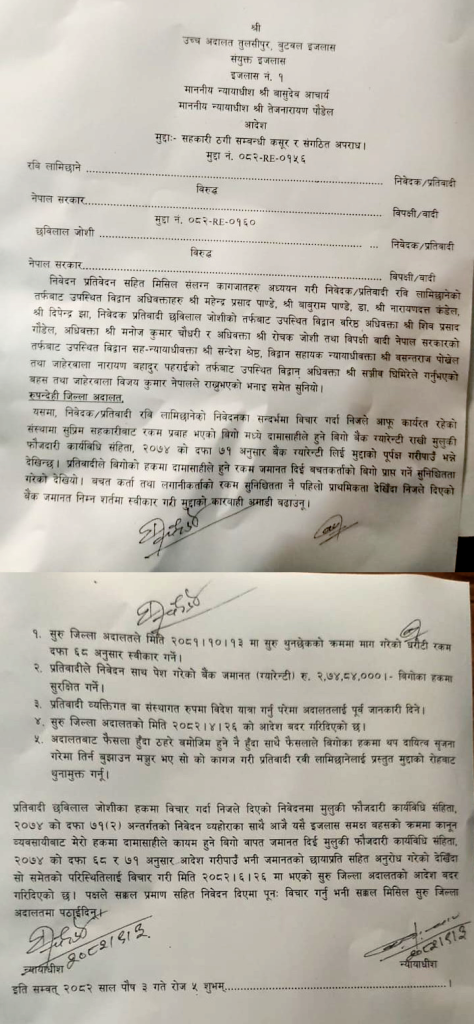 श्री
उच्च अदालत तुलसीपुर, बुटवल इजलास
संयुक्त इजलास
इजलास नं. १
माननीय न्यायाधीश श्री बासुदेव आचार्य
माननीय न्यायाधीश श्री तेजनारायण पौडेल
आदेश
मुद्दाः- सहकारी ठगी सम्बन्धी कसूर र संगठित अपराध।
मुद्दा नं. ०८२-RE-०१५६
रवि लामिछाने ........ निवेदक/प्रतिवादी
विरुद्ध
नेपाल सरकार........ विपक्षी/वादी
मुद्दा नं. ०८२-RE-०१६०
छविलाल जोशी ........ निवेदक/प्रतिवादी
विरुद्ध
नेपाल सरकार........ विपक्षी/वादी
निवेदन प्रतिवेदन सहित मिसिल संलग्न कागजातहरु अध्ययन गरी निवेदक/प्रतिवादी रवि लामिछानेको
तर्फबाट उपस्थित विद्वान अधिवक्ताहरु श्री महेन्द्र प्रसाद पाण्डे, श्री बाबुराम पाण्डे, डा. श्री नारायणदत्त कंडेल,
श्री दिपेन्द्र झा, निवेदक प्रतिवादी छविलाल जोशीको तर्फबाट उपस्थित विद्वान वरिष्ठ अधिवक्ता श्री शिव प्रसाद
गौंडेल, अधिवक्ता श्री मनोज कुमार चौधरी र अधिवक्ता श्री रोचक जोशी तथा विपक्षी वादी नेपाल सरकारको
तर्फबाट उपस्थित विद्वान सह-न्यायाधीवक्ता श्री सन्देश श्रेष्ठ, विद्वान सहायक न्यायाधीवक्ता श्री बसन्तराज पोखेल
तथा जाहेरवाला नारायण बहादुर पहराईको तर्फबाट उपस्थित विद्वान् अधिवक्ता श्री सञ्जीब घिमिरेले गर्नुभएको
बहस तथा जाहेरवाला विजय कुमार नेपालले राख्नुभएको भनाइ समेत सुनियो।
रुपन्देही जिल्ला अदालत,
यसमा, निवेदक/प्रतिवादी रवि लामिछानेको निवेदनका सन्दर्भमा विचार गर्दा निजले आफू कार्यरत रहेको
संस्थामा सुप्रिम सहकारीबाट रकम प्रवाह भएको बिगो मध्ये दामासाहीले हुने बिगो बैंक ग्यारेण्टी राखी मुलुकी
फौजदारी कार्यविधि संहिता, २०७४ को दफा ७१ अनुसार बैंक ग्यारेण्टि लिई मुद्दाको पूर्पक्ष गरीपाउँ भन्ने
देखिन्छ। प्रतिवादीले बिगोको हकमा दामासाहीले हुने रकम जमानत दिई बचतकर्ताको बिगो प्राप्त गर्ने सुनिश्चितता
गरेको देखियो। बचत कर्ता तथा लगानीकर्ताको रकम सुनिश्चितता नै पहिलो प्राथमिकता देखिँदा निजले दिएको
बैंक जमानत निम्न शर्तमा स्वीकार गरी मुद्दाको कारवाही अगाडी बढाउनू।
१. सुरु जिल्ला अदालतले मिति २०८१।१०।१३ मा सुरु थुनछेकको क्रममा माग गरेको धरौटी रकम
दफा ६८ अनुसार स्वीकार गर्ने।
२. प्रतिवादीले निवेदन साथ पेश गरेको बैंक जमानत (ग्यारेन्टी) रु. २,७४,८४,०००।- बिगोका हकमा
सुरक्षित गर्ने।
३. प्रतिवादी व्यक्तिगत वा संस्थागत रुपमा विदेश यात्रा गर्नु परेमा अदालतलाई पूर्व जानकारी दिने।
४. सुरु जिल्ला अदालतको मिति २०८२।४।२६ को आदेश बदर गरिदिएको छ।
५. अदालतबाट फैसला हुँदा ठहरे बमोजिम हुने नै हुँदा साथै फैसलाले बिगोका हकमा थप दायित्व सृजना
गरेमा तिर्न बुझाउन मञ्जुर भए सो को कागज गरी प्रतिवादी रवी लामिछानेलाई प्रस्तुत मुद्दाको रोहबाट
थुनामुक्त गर्नू।
प्रतिवादी छबिलाल जोशीका हकमा विचार गर्दा निजले दिएको निवेदनमा मुलुकी फौजदारी कार्यविधि संहिता,
२०७४ को दफा ७१(२) अन्तर्गतको निवेदन व्यहोराका साथै आजै यसै इजलास समक्ष बहसको क्रममा कानून
व्यवसायीबाट मेरो हकमा दामासाहीले कायम हुने बिगो बापत जमानत दिई मुलुकी फौजदारी कार्यविधि संहिता,
२०७४ को दफा ६८ र ७१ अनुसार आदेश गरीपाउँ भनी जमानतको छायाप्रति सहित अनुरोध गरेको देखिँदा
सो समेतको परिस्थितिलाई विचार गरी मिति २०८२।६।२६ मा भएको सुरु जिल्ला अदालतको आदेश बदर
गरिदिएको छ। पक्षले सक्कल प्रमाण सहित निवेदन दिएमा पूनः विचार गर्नु भनी सक्कल मिसिल सुरु जिल्ला
अदालतमा पठाईदिनू।
२०८२।९।३ २०८२।९।३
न्यायाधीश न्यायाधीश
इति सम्बत् २०८२ साल पौष ३ गते रोज ५ शुभम्........।